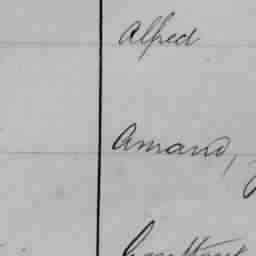 Alfred
Amand,